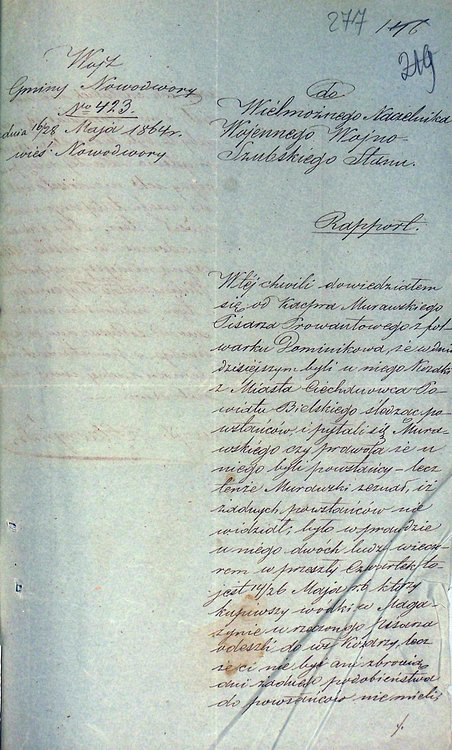 277 146
219
Wojt
Gminy Nowodwory
No 423
dnia 16/28 Maja 1864 r.
wieś Nowodwory
do
Wielmożnego Naczelnika
Wojennego Wojno-
Szubskiego Stanu.
Rapport.
W tej chwili dowiedziałem
się od Kacpra Murawskiego
Pisarza Prowantowego z fol
warku Dominikowa, że w dniu
dzisiejszym byli u niego Kozaki
z Miasta Ciechanowca Po
wiatu Bielskiego śledząc po
wstańców, i pytali się Mura
wskiego czy prawda że u
niego byli powstańcy – lecz
tenże Murawski zeznał, iż
żadnych powstańców nie
widział; było wprawdzie
u niego dwóch ludzi wieczo
rem w przeszły Czwartek to
jest 14/26 Maja r.b. którzy
kupiwszy wódki w Maga
zynie urzędnego Pisarza
odeszli do wsi Kozarzy, lecz
że ci nie byli ani zbrojni
ani żadnego podobieństwa
do powstańców nie mieli;